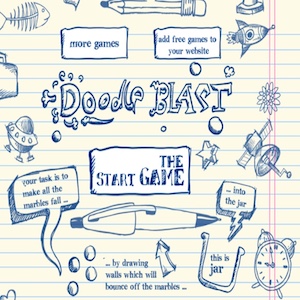 more games
add free games to
your website
Doodle BLAST
THE
START GAME
your task is to
make all the
marbles fall ...
... into
the jar
... by drawing
walls which will
bounce off the marbles ...
this is
jar